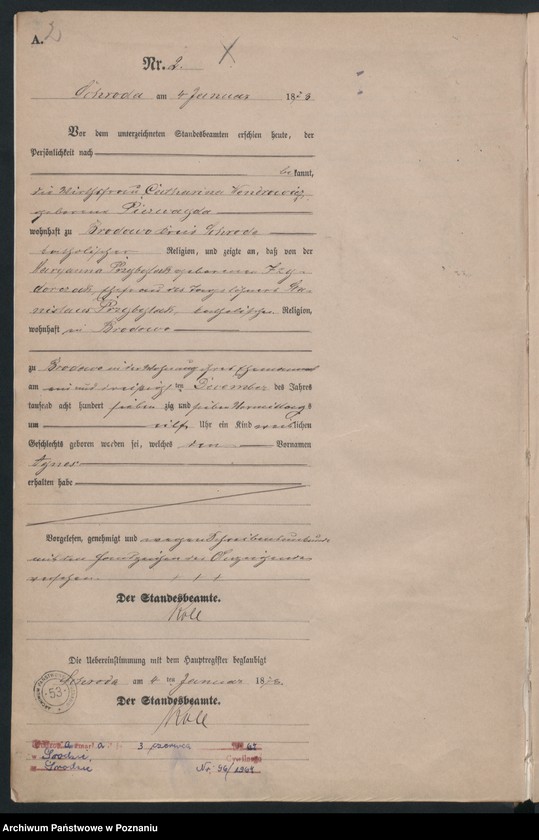 A.
Nr. 2.
Schroda am 4 Januar 187 8
Vor dem unterzeichneten Standesbeamten erschien heute, der
Persönlichkeit nach
bekannt,
die Wirthsfrau Catharina
geborene
wohnhaft zu Brodowo Kreis Schroda
katholischer Religion, und zeigte an, daß von der
Maryanna Przybylak geborenen Szy-
dorczak, Ehefrau des Tagelöhners Sta-
nislaus Przybylak, katholischer Religion,
wohnhaft zu Brodowo
zu Brodowo in der Wohnung ihres Ehemannes
am ein und dreißigsten December des Jahres
tausend acht hundert siebenzig und sieben Vormittags
um eilf Uhr ein Kind weiblichen
Geschlechts geboren worden sei, welches den Vornamen
Agnes
erhalten habe
Vorgelesen, genehmigt und wegen Schreibensunkunde
mit dem Handzeichen der Anzeigenden
versehen. + + +
Der Standesbeamte.
Koll
Die Uebereinstimmung mit dem Hauptregister beglaubigt
Schroda am 4 ten Januar 187 8.
Der Standesbeamte.
Koll
53
3 czerwca 67
Środzie
Środzie Nr. 96/1967
Archiwum Państwowe w Poznaniu